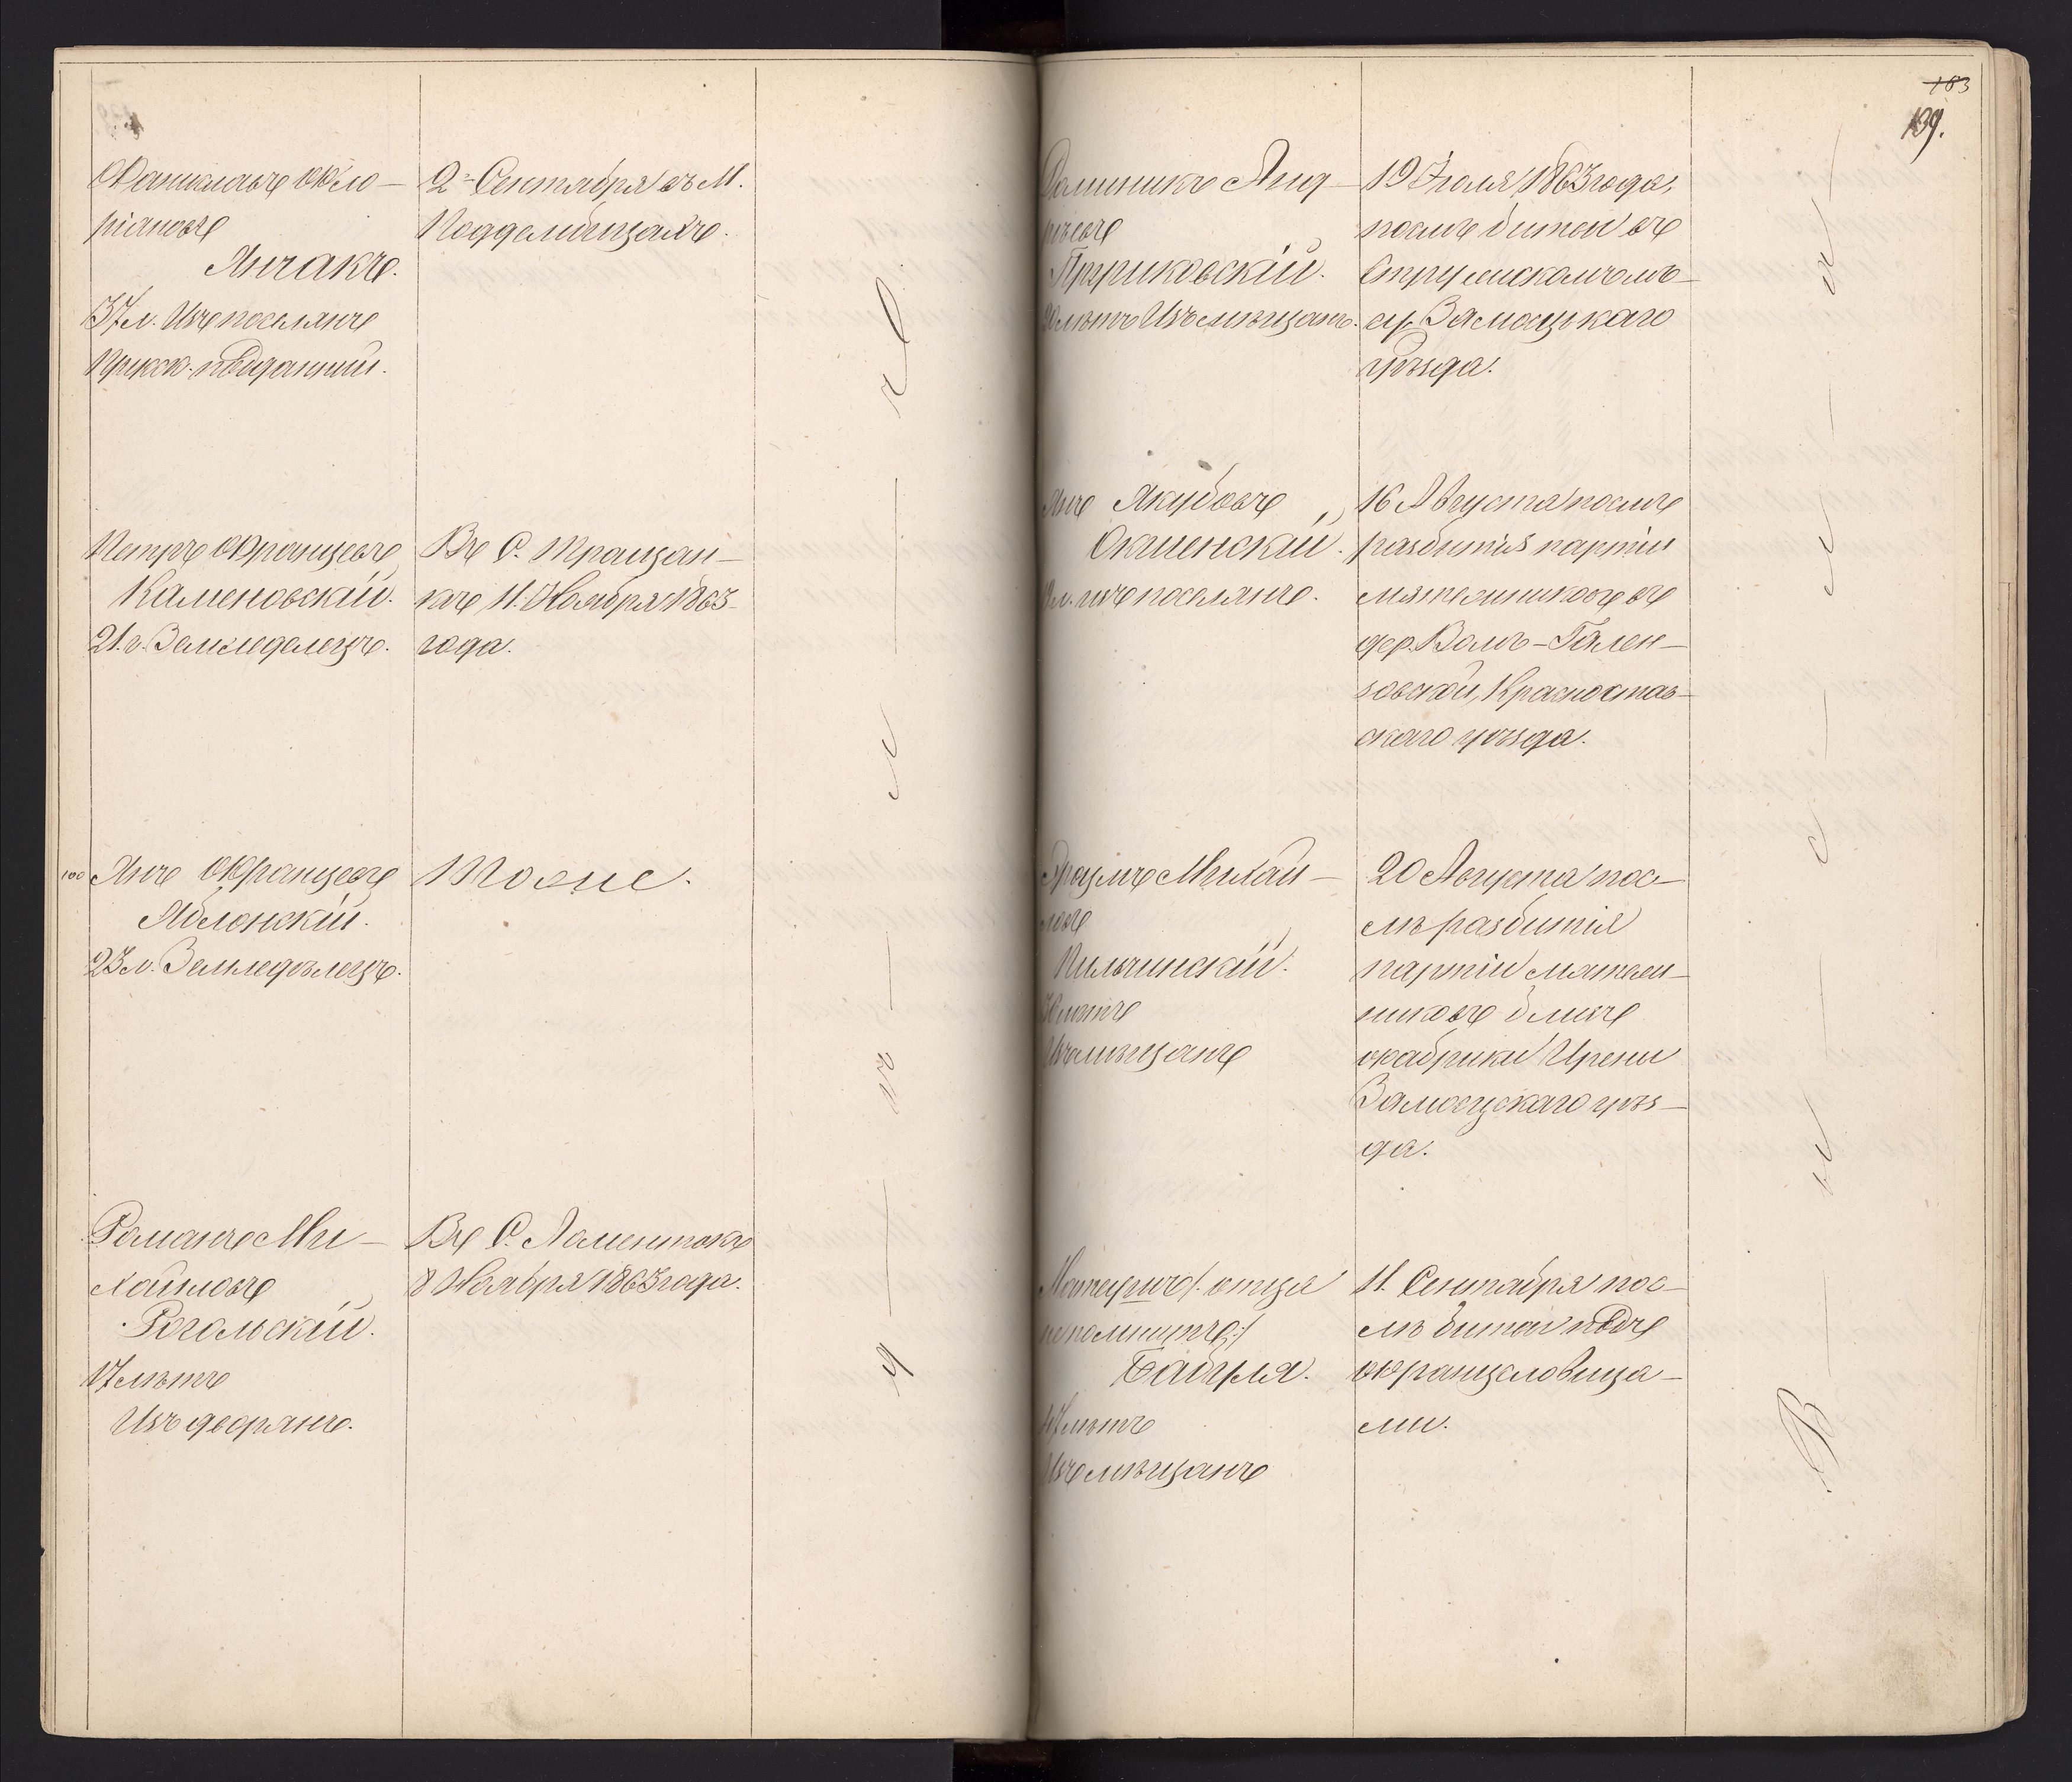 Станиславъ Фло-
ріановъ
Янчакъ.
37 л. Изъ поселянъ
Прусск. подданный.
2 Сентября въ М.
Поддембицахъ.
Петръ Францевъ
Каменовскій.
21. г. Земледелецъ.
Въ С. Трацан-
кѣ 11. Ноября 1863
года.
100
Янъ Францевъ
Яблонскій.
23 л. Земледѣлецъ.
Тоже.
Романъ Ми-
хайловъ
Рогольскій.
17 лѣтъ
Изъ дворянъ.
Въ С.
8 Ноября 1863 года.
183
139.
Доминикъ Анд-
реевъ
лѣтъ Изъ мѣщанъ.
19 Іюля 1863 года,
послѣ битвы въ
Замосцькаго
уѣзда.
Янъ Якубовъ
Окшенскій.
л. изъ поселянъ.
16 Августа послѣ
разбитія партіи
мятежниковъ въ
дер. Воль-Гален-
зовской, Красностав-
скаго уѣзда.
Михай-
ловъ
Пильчинскій.
лѣтъ
Изъ мѣщанъ
20 Августа пос-
лѣ разбитія
партіи мятеж-
никовъ близъ
фабрики Ирены
Замосцскаго уѣз-
да.
Матеушъ /: отца
непомнитъ :/
Бабуля.
лѣтъ
Изъ мѣщанъ
11. Сентября пос-
лѣ битвы подъ
Францисловица-
ми.